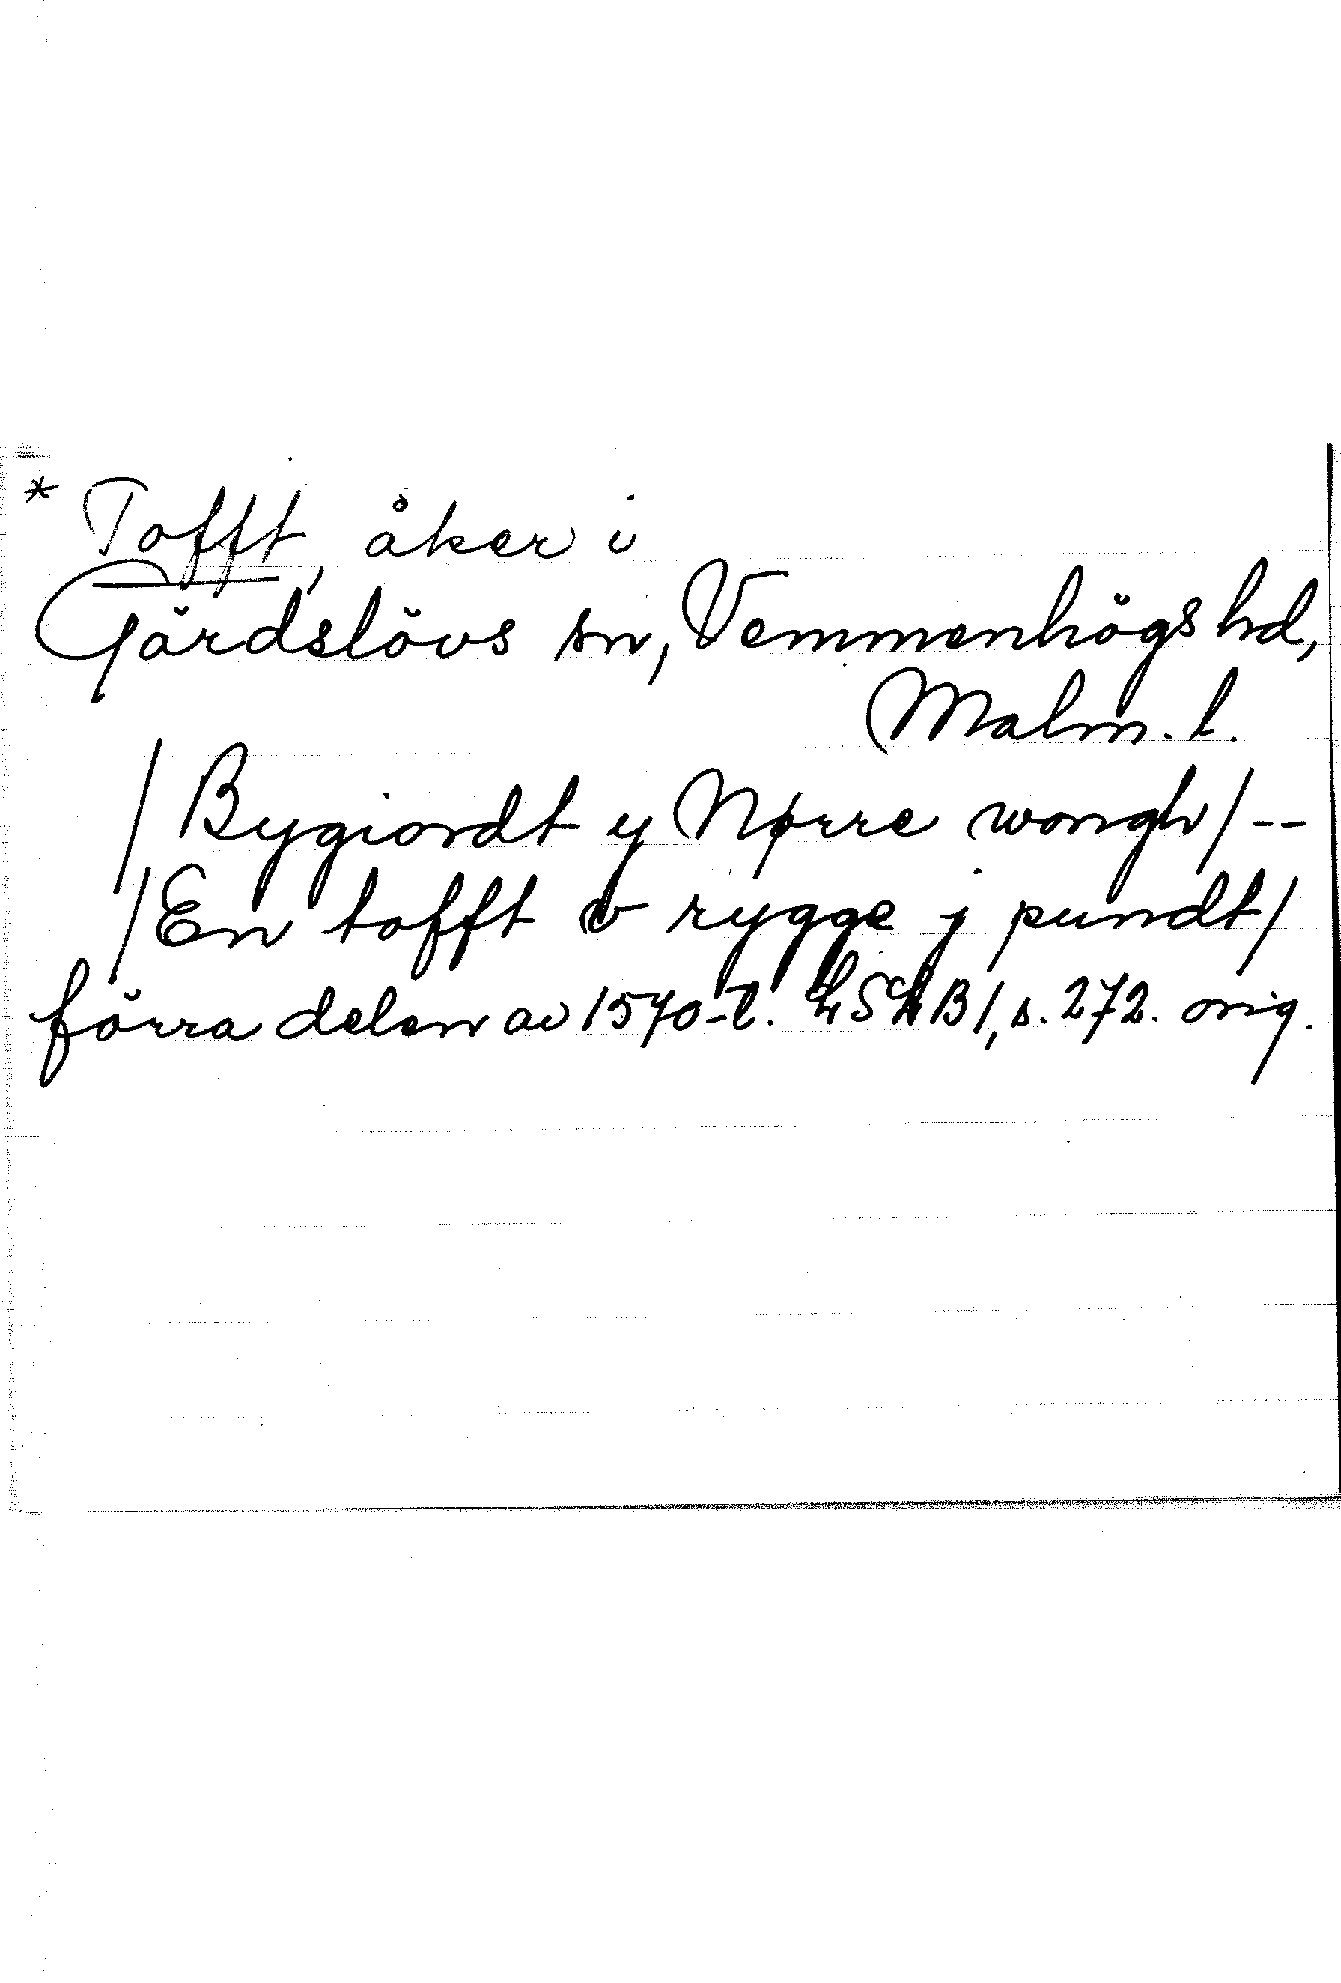 * Tofft, åker i
Gärdslövs sn, Vemmenhögs hd,
Malm. l.
/Bygiordt y Nørre wongh/--
/En tofft rygge j pundt/
förra delen av 1570-t. s. 272. orig.